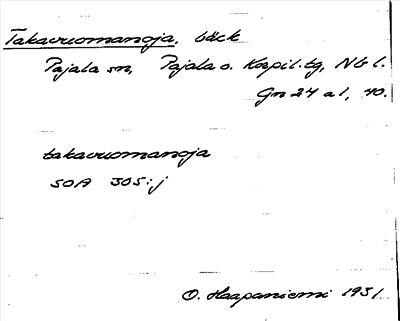 Takavuomanoja, bäck
Pajala sn, Pajala o. Korpil. tg, NB l.
Gn 24 a 1, 40.
takavuomanoja
SOA 305:j
O. Haapaniemi 1931